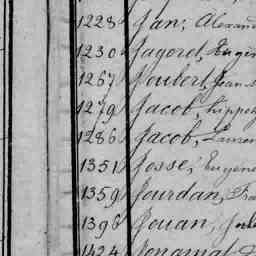 1228 Jan, Alexand
1230 Jagoret, Eugèn
1267 Joubert, Jean
1279 Jacob, hippoly
1286 Jacob, Lauren
1351 Josse, Eugène
1359 Jourdan, Fra
1396 Jouan, Jule
1424